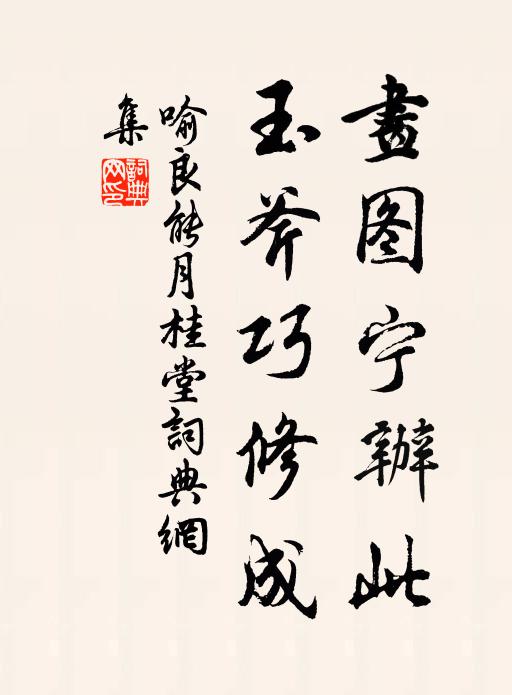 畫图宁辦此
玉斧巧修成
喻良能月桂堂詞典網
集
詞典網印